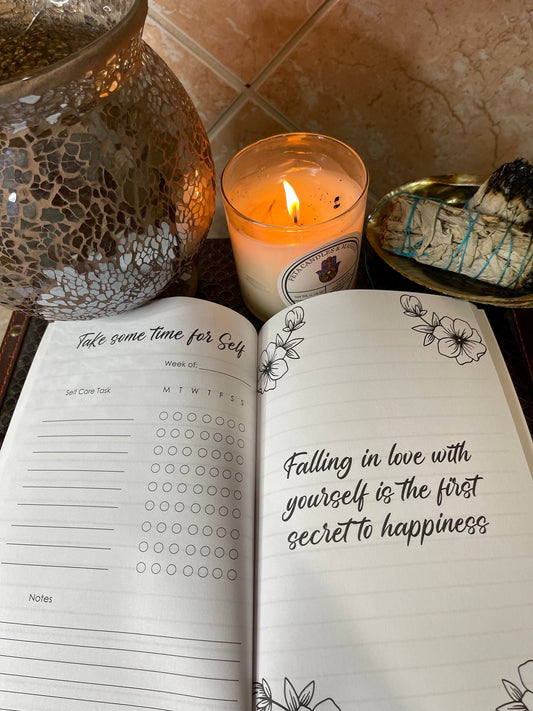 CANDLES &
Take some time for Self
Week of:
Self Care Task
M T W T F S S
Notes
Falling in love with
yourself is the first
secret to happiness